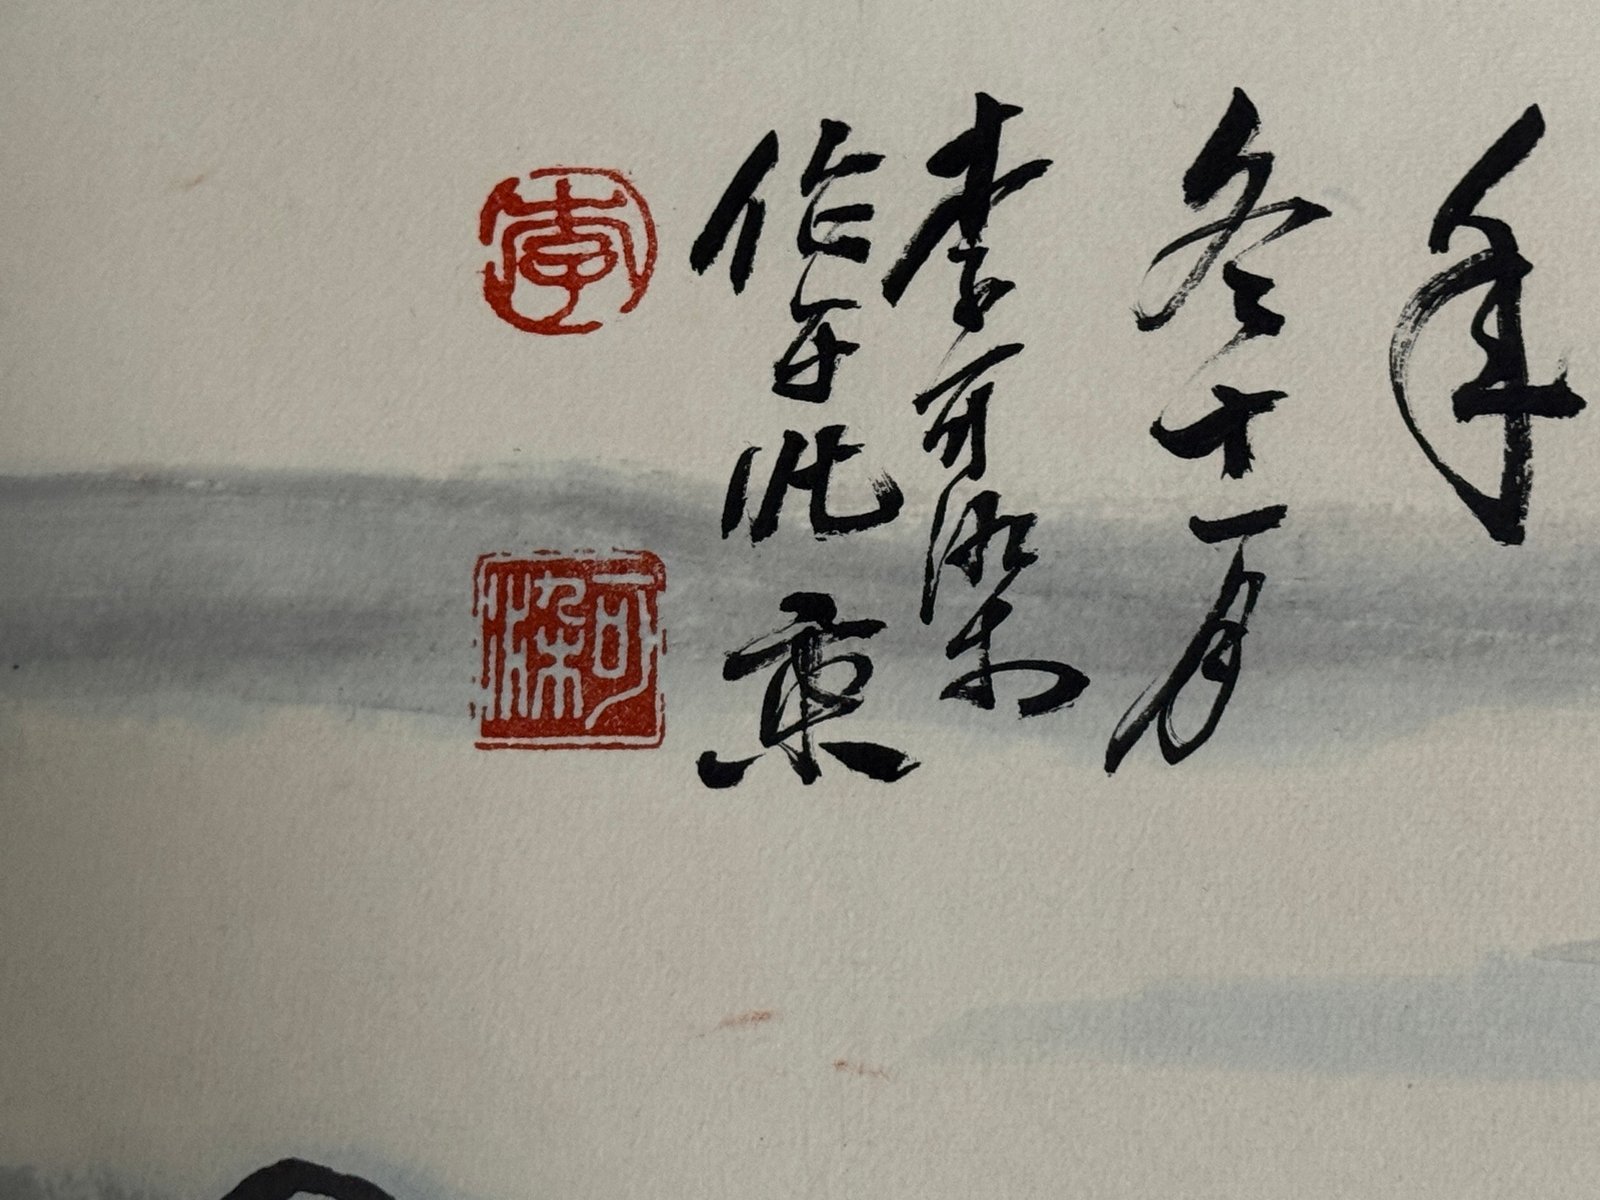 年
冬十一月
李可染
作于北京
李
可染